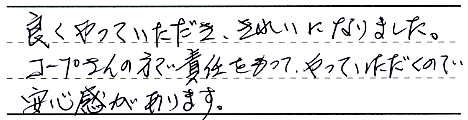 良くやっていただき、きれいになりました。
コープさんの方で責任をもって、やっていただくので
安心感があります。